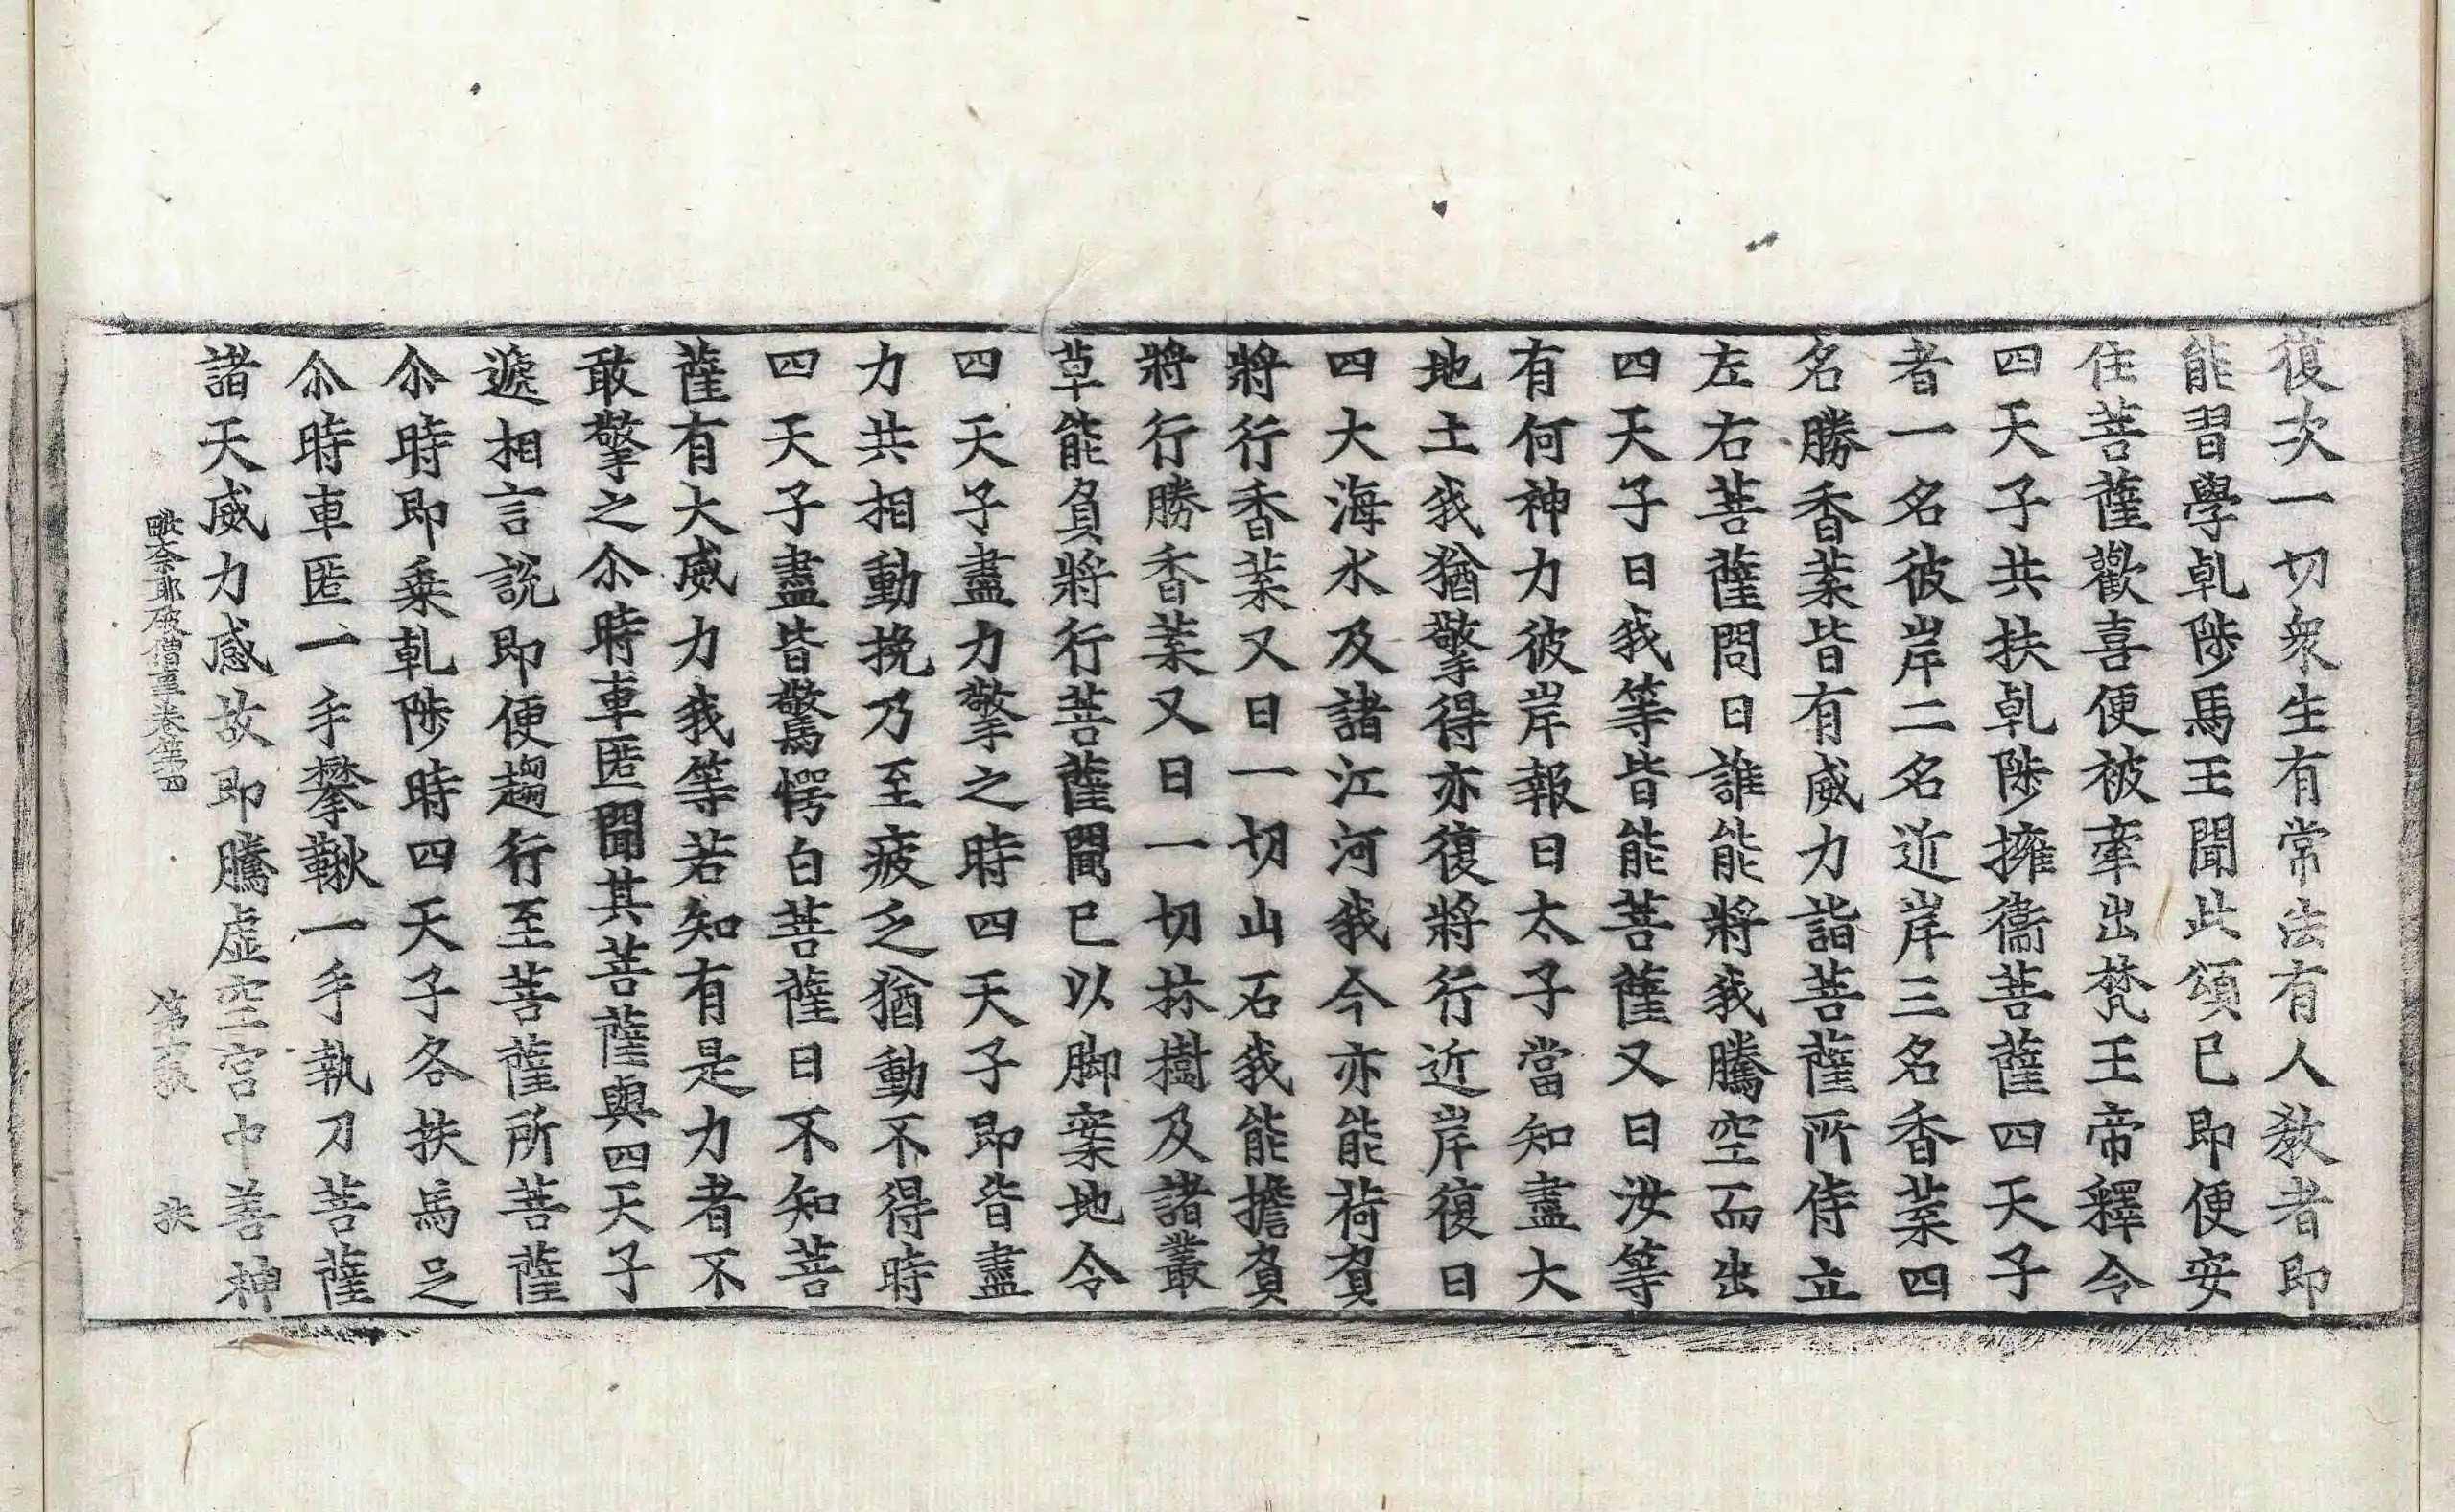 復次一切衆生有常法有人教者即
能習學乹陟馬王聞此頌已即便安
住菩薩歡喜便被牽出梵王帝釋令
四天子共扶乹陟擁衞菩薩四天子
者一名彼岸二名近岸三名香葉四
名勝香葉皆有威力詣菩薩所侍立
左右菩薩問曰誰能將我騰空而出
四天子曰我等皆能菩薩又曰汝等
有何神力彼岸報曰太子當知盡大
地土我猶擎得亦復將行近岸復曰
四大海水及諸江河我今亦能荷負
將行香葉又曰一切山石我能擔負
將行勝香葉又曰一切林樹及諸叢
草能負將行菩薩聞已以脚案地令
四天子盡力擎之時四天子即皆盡
力共相動挽乃至疲乏猶動不得時
四天子盡皆驚愕白菩薩曰不知菩
薩有大威力我等若知有是力者不
敢擎之尒時車匿聞其菩薩與四天子
遞相言說即便趨行至菩薩所菩薩
尒時即乗乹陟時四天子各扶馬足
尒時車匿一手攀鞦一手執刀菩薩
諸天威力感故即騰虛空宫中善神
毗奈耶破僧事卷第四 第十張 扶